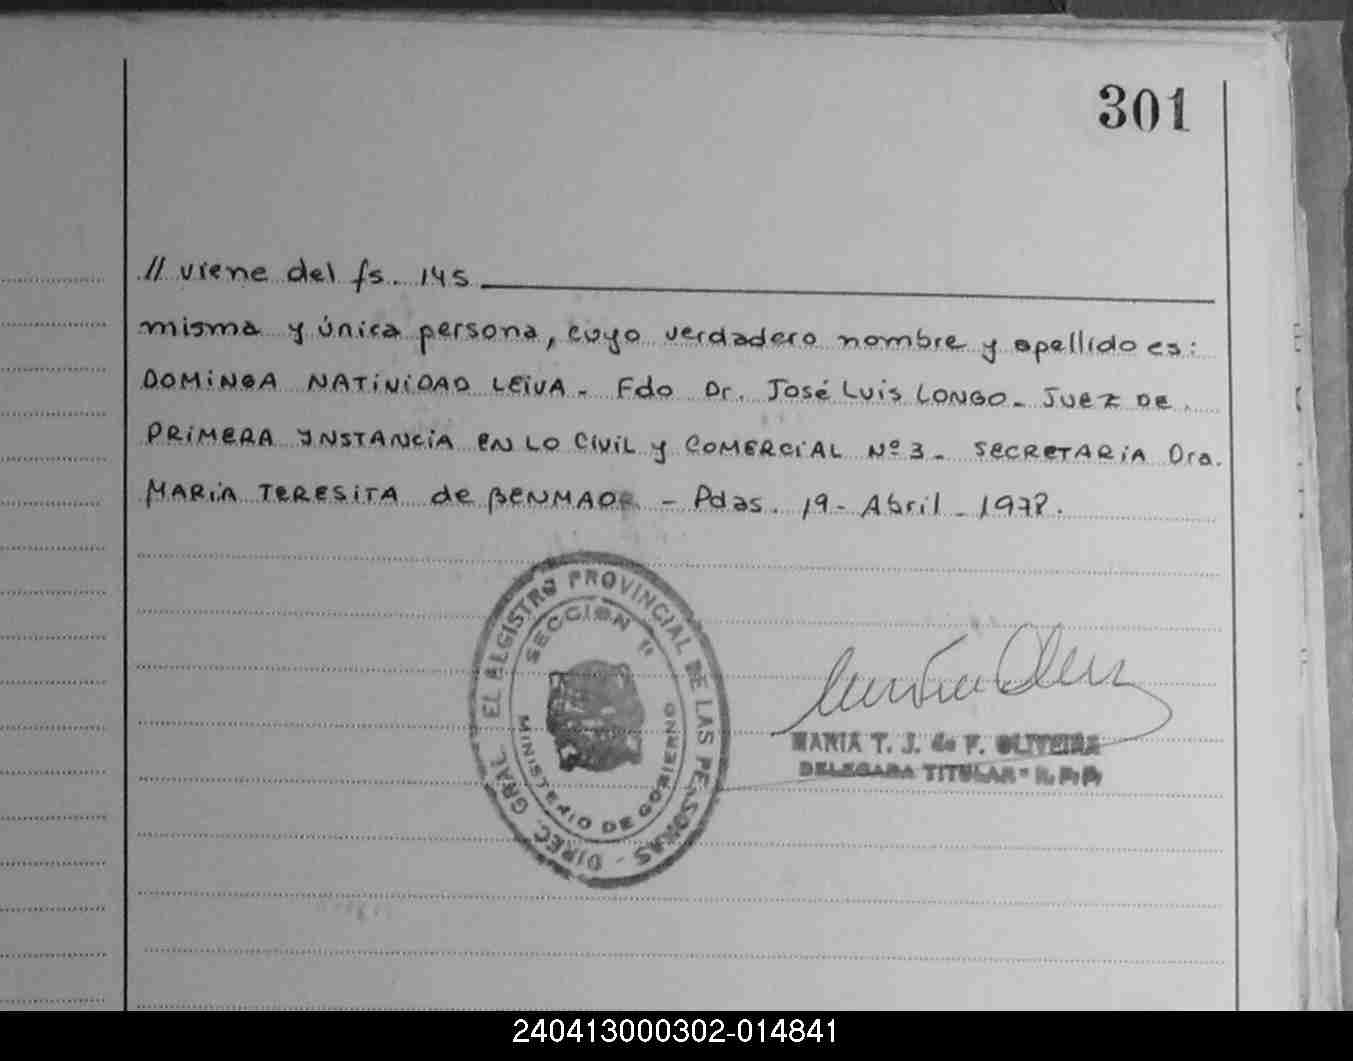 301
// viene del fs. 145
misma y única persona, cuyo verdadero nombre y apellido es:
DOMINGA NATINIDAD LEIVA - Fdo Dr. José Luis LONGO - JUEZ DE
PRIMERA YNSTANCIA EN LO CIVIL y COMERCIAL Nº 3 - SECRETARIA Dra.
MARIA TERESITA de BENMAOR - Pdas. 19 - Abril - 1978.
DIREC. GRAL. EL REGISTRO PROVINCIAL DE LAS PERSONAS -
SECCION
MINISTERIO DE GOBIERNO
MARIA T. J. de F. OLIVEIRA
DELEGADA TITULAR - R. P. P.
240413000302-014841